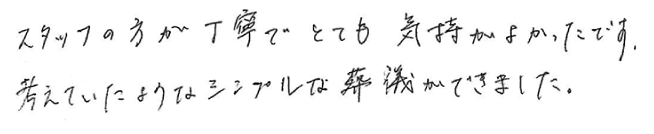 スタッフの方が丁寧でとても気持がよかったです.
考えていたようなシンプルな葬儀ができました。